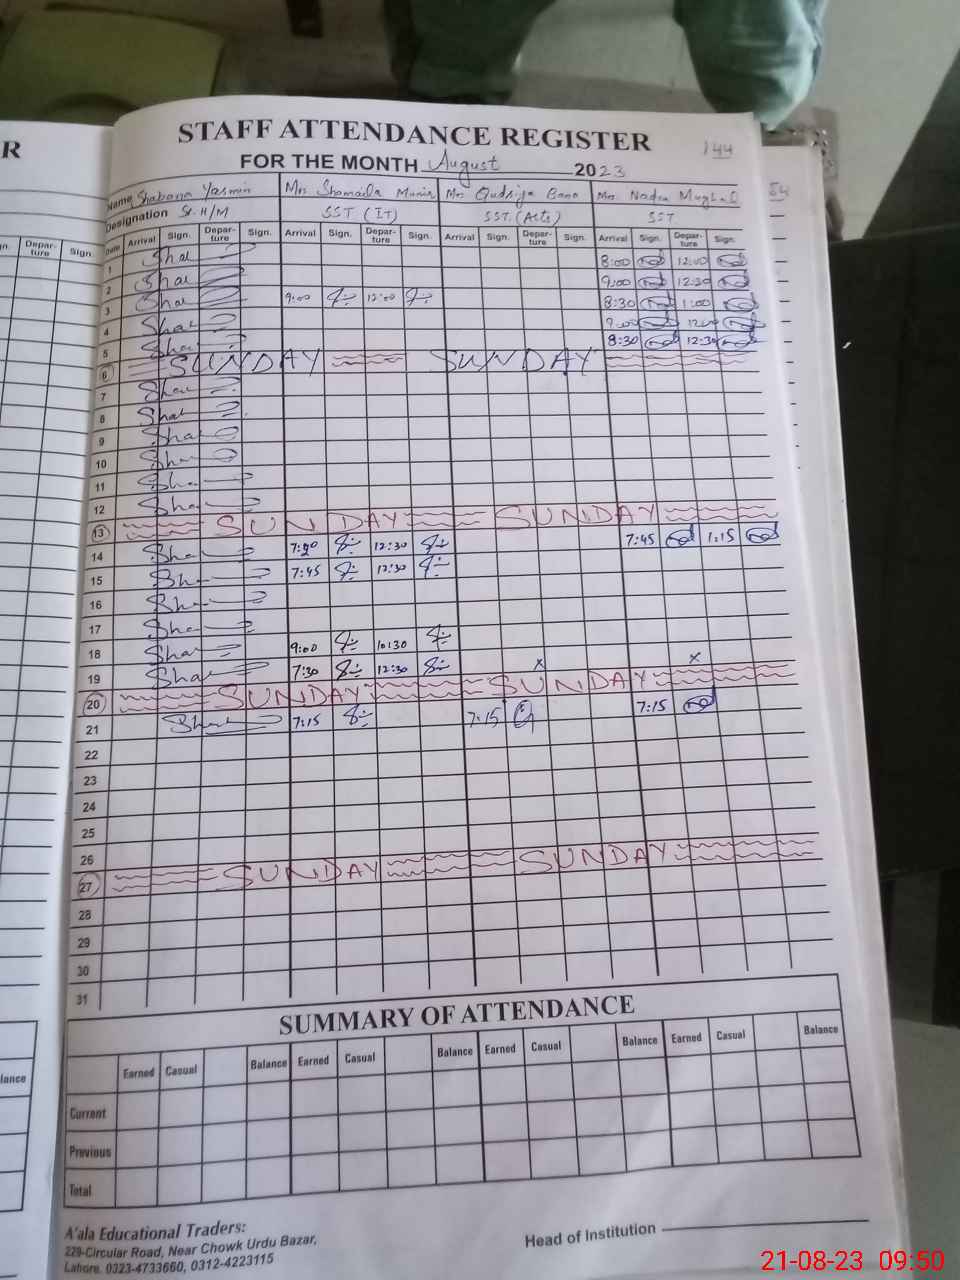 R
STAFF ATTENDANCE REGISTER
144
FOR THE MONTH August 2023
54
Name Shabana Yasmin Mrs Shamaila Munir Mrs Qudsija Bano Mrs. Nadra Mughal
Designation Sr. H/M SST (IT) SST. (Arts) SST
n. Depar-ture Sign. Date Arrival Sign. Depar-ture Sign. Arrival Sign. Depar-ture Sign. Arrival Sign. Depar-ture Sign. Arrival Sign. Depar-ture Sign.
1 Sha 8:00 12:00
2 Sha 9:00 12:30
3 Sha 9:00 12:00 8:30 1:00
4 Sha 9:00
5 Sha 8:30 12:30
6 SUNDAY SUNDAY
7 Sha
8 Sha
9 Sha
10 Sha
11 Sha
12 Sha
13 SUNDAY SUNDAY
14 Sha 12:30 7:45 1:15
15 Sha 7:45 12:30
16 Sha
17 Sha
18 Sha 9:00 10:30
19 Sha 7:30 12:30 x x
20 SUNDAY SUNDAY
21 Sha 7:15 7:15 7:15
22
23
24
25
26
27 SUNDAY SUNDAY
28
29
30
31
SUMMARY OF ATTENDANCE
lance Earned Casual Balance Earned Casual Balance Earned Casual Balance Earned Casual Balance
Current
Previous
Total
A'ala Educational Traders:
229-Circular Road, Near Chowk Urdu Bazar,
Lahore. 0323-4733660, 0312-4223115
Head of Institution
21-08-23 09:50